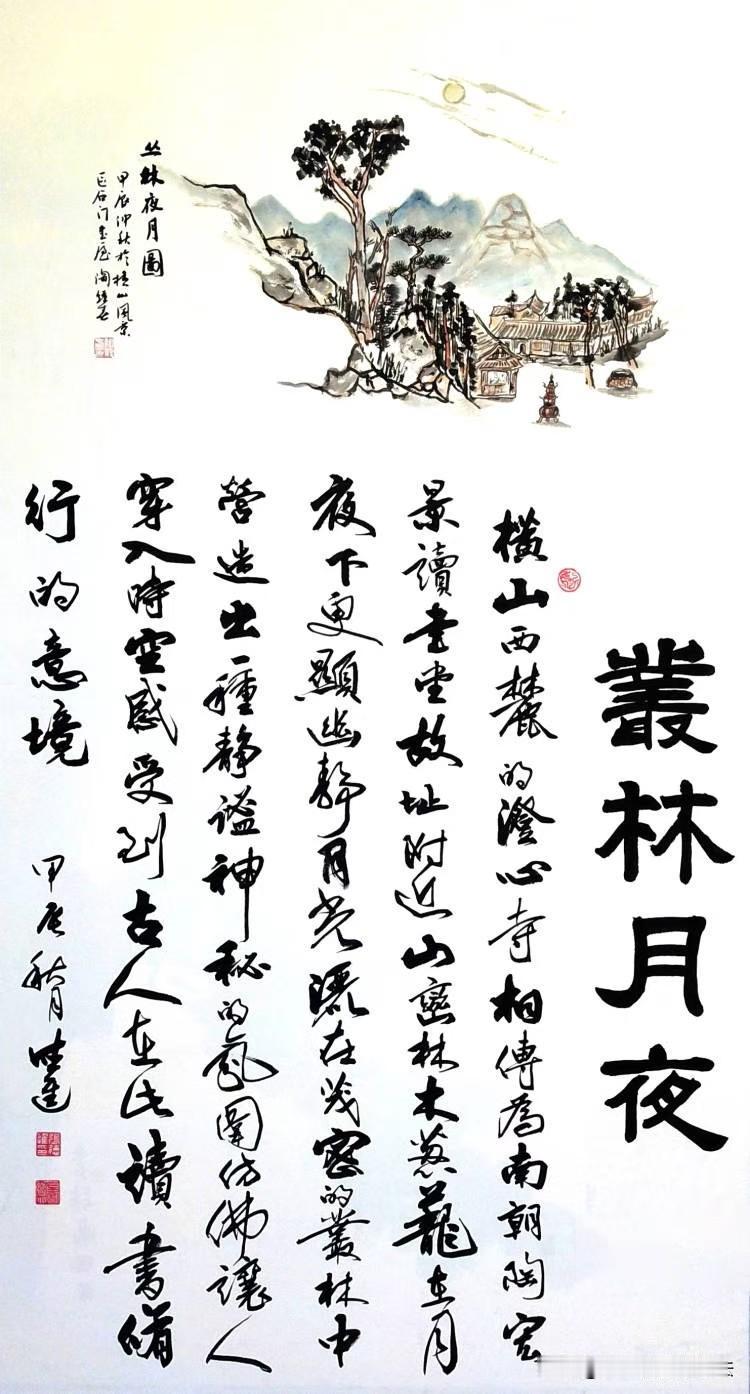 丛林夜月圖
甲辰仲秋於横山風景
叢林月夜
橫山西麓的澄心寺相傳為南朝陶宏
景讀書堂故址附近山巒林木蔥蘢在月
夜下更顯幽靜月光灑在茂密的叢林中
營造出一種静谧神秘的氛圍仿佛讓人
穿入時空感受到古人在此讀書脩
行的意境
甲辰秋月